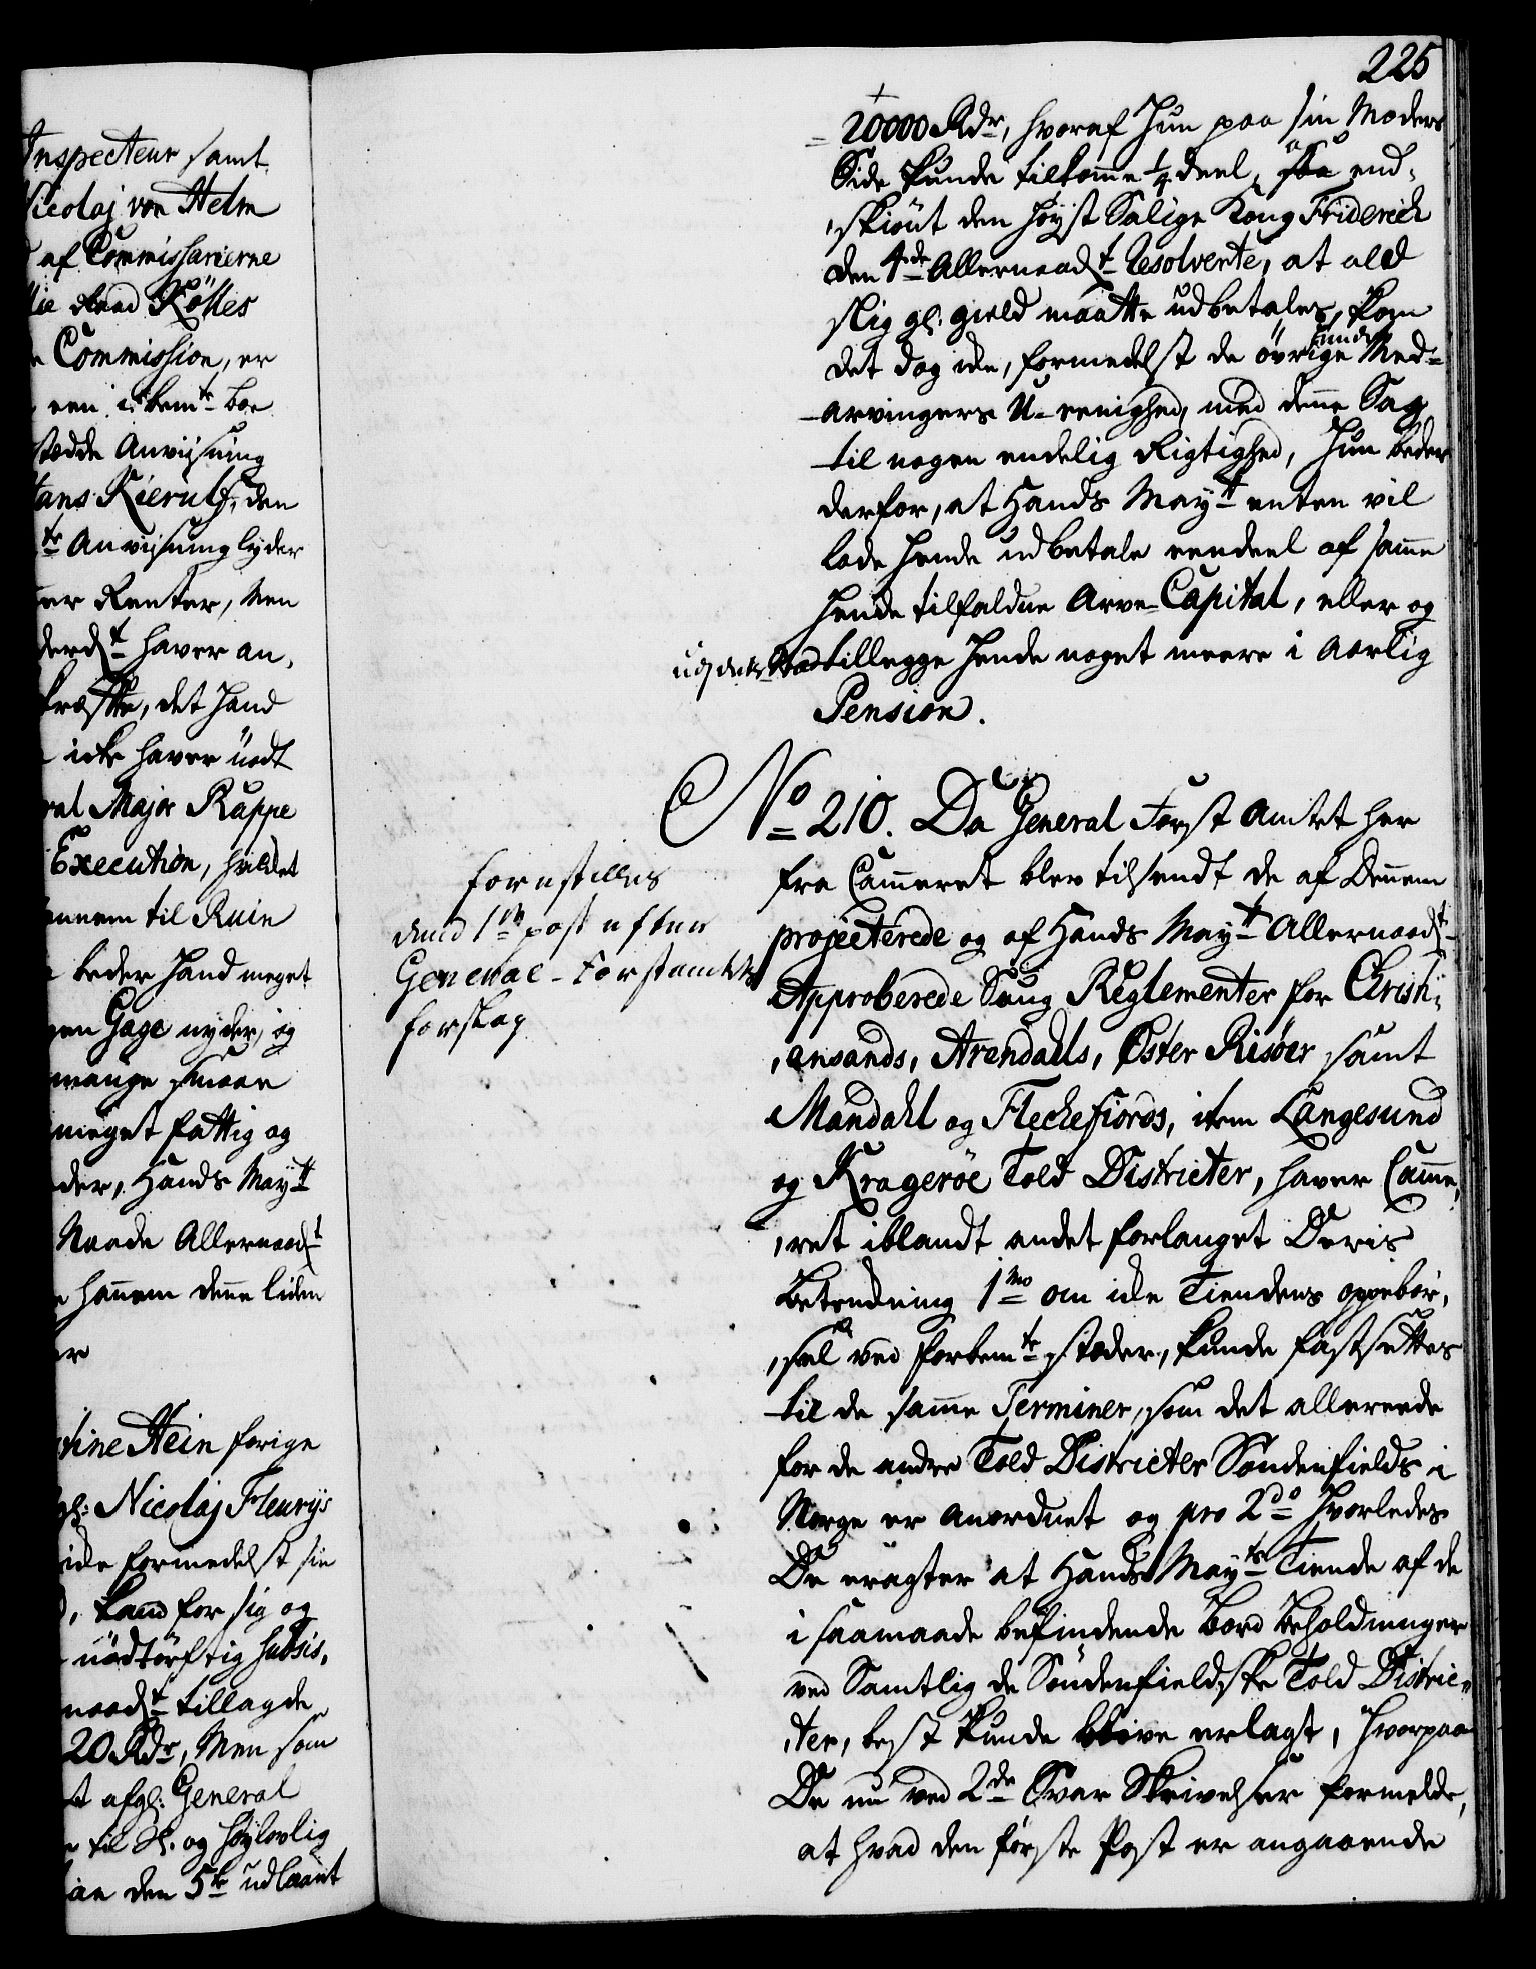 Inspecteur samt
Nicolaj von Helm
af Commissarierne
Raad Röttes
Commission, er
een i bem.te boe
stædde Anviisning
Hans Kierulf, den
te Anviisning lyder
er Renter, Men
haver an,
det hand
icke haver nödt
ral Major Kuppe
Execution, hvilket
ennem til Ruin
beder hand meget
gen Gage nyder, og
mange smaae
meget fattig og
der, Hands May.tt
Naade Allernaad.t
hannem denne liden
er
tine Hein forige
gl: Nicolaj Fleurÿs
ide formedelst sin
kand for sig og
nödtörftig subsis,
naad.t tillagde
20 Rd.r, Men som
t afgl: General
til Sl. og Höÿlovlig
an den 5.te udlaant
225
20000 Rd.r, hvoraf Hun paa sin Moders
Side kunde tilkomme 1/4 deel, saa end,
,skiönt den Höÿst Salige Kong Friderich
den 4.de Allernaad.t Resolverte, at ald
slig gl. gield maatte udbetales, kom
det dog icke, formedelst de övrige
Med-
arvingers U-eenighed, med denne Sag
til nogen endelig Rigtighed, Hun beder
derfor, at Hands May.tt enten vil
lade Hende udbetale eendeel af samme
Hende tilfaldne Arve-Capital, eller og
tillegge Hende noget meere i Aarlig
Pension.
No 210. Da General Forst Amtet her
fra Cammeret blev tilsendt de af Dennem
projecterede og af Hands May.tt Allernaad.t
Approberede Saug Reglementer for Christi,
,ansands, Arendahls, Øster Risöer samt
Mandahl og Fleckefiords, item Langesund
og Kragerøe Told Districter, haver Camme,
,ret iblandt andet forlanget Deris
Betenckning 1.mo om icke Tiendens oppebör,
,sel ved forbem.te stæder, kunde fastsettes
til de samme Terminer, som det allereede
for de andre Told Districter Söndenfields i
Norge er Anordnet og pro 2.do Hvorledes
De eragter at Hands May.ts Tiende af de
i saamaade befindende Bord Beholdninger
ved Samtlig de Söndenfieldske Told Distric,
,ter, best kunde blive erlagt, Hvorpaa
De nu ved 2.de Svar Skrivelser formelde,
at hvad den förste Post er angaaende
forestilles
dend 1.te post efter
General-Forstamtets
forslag